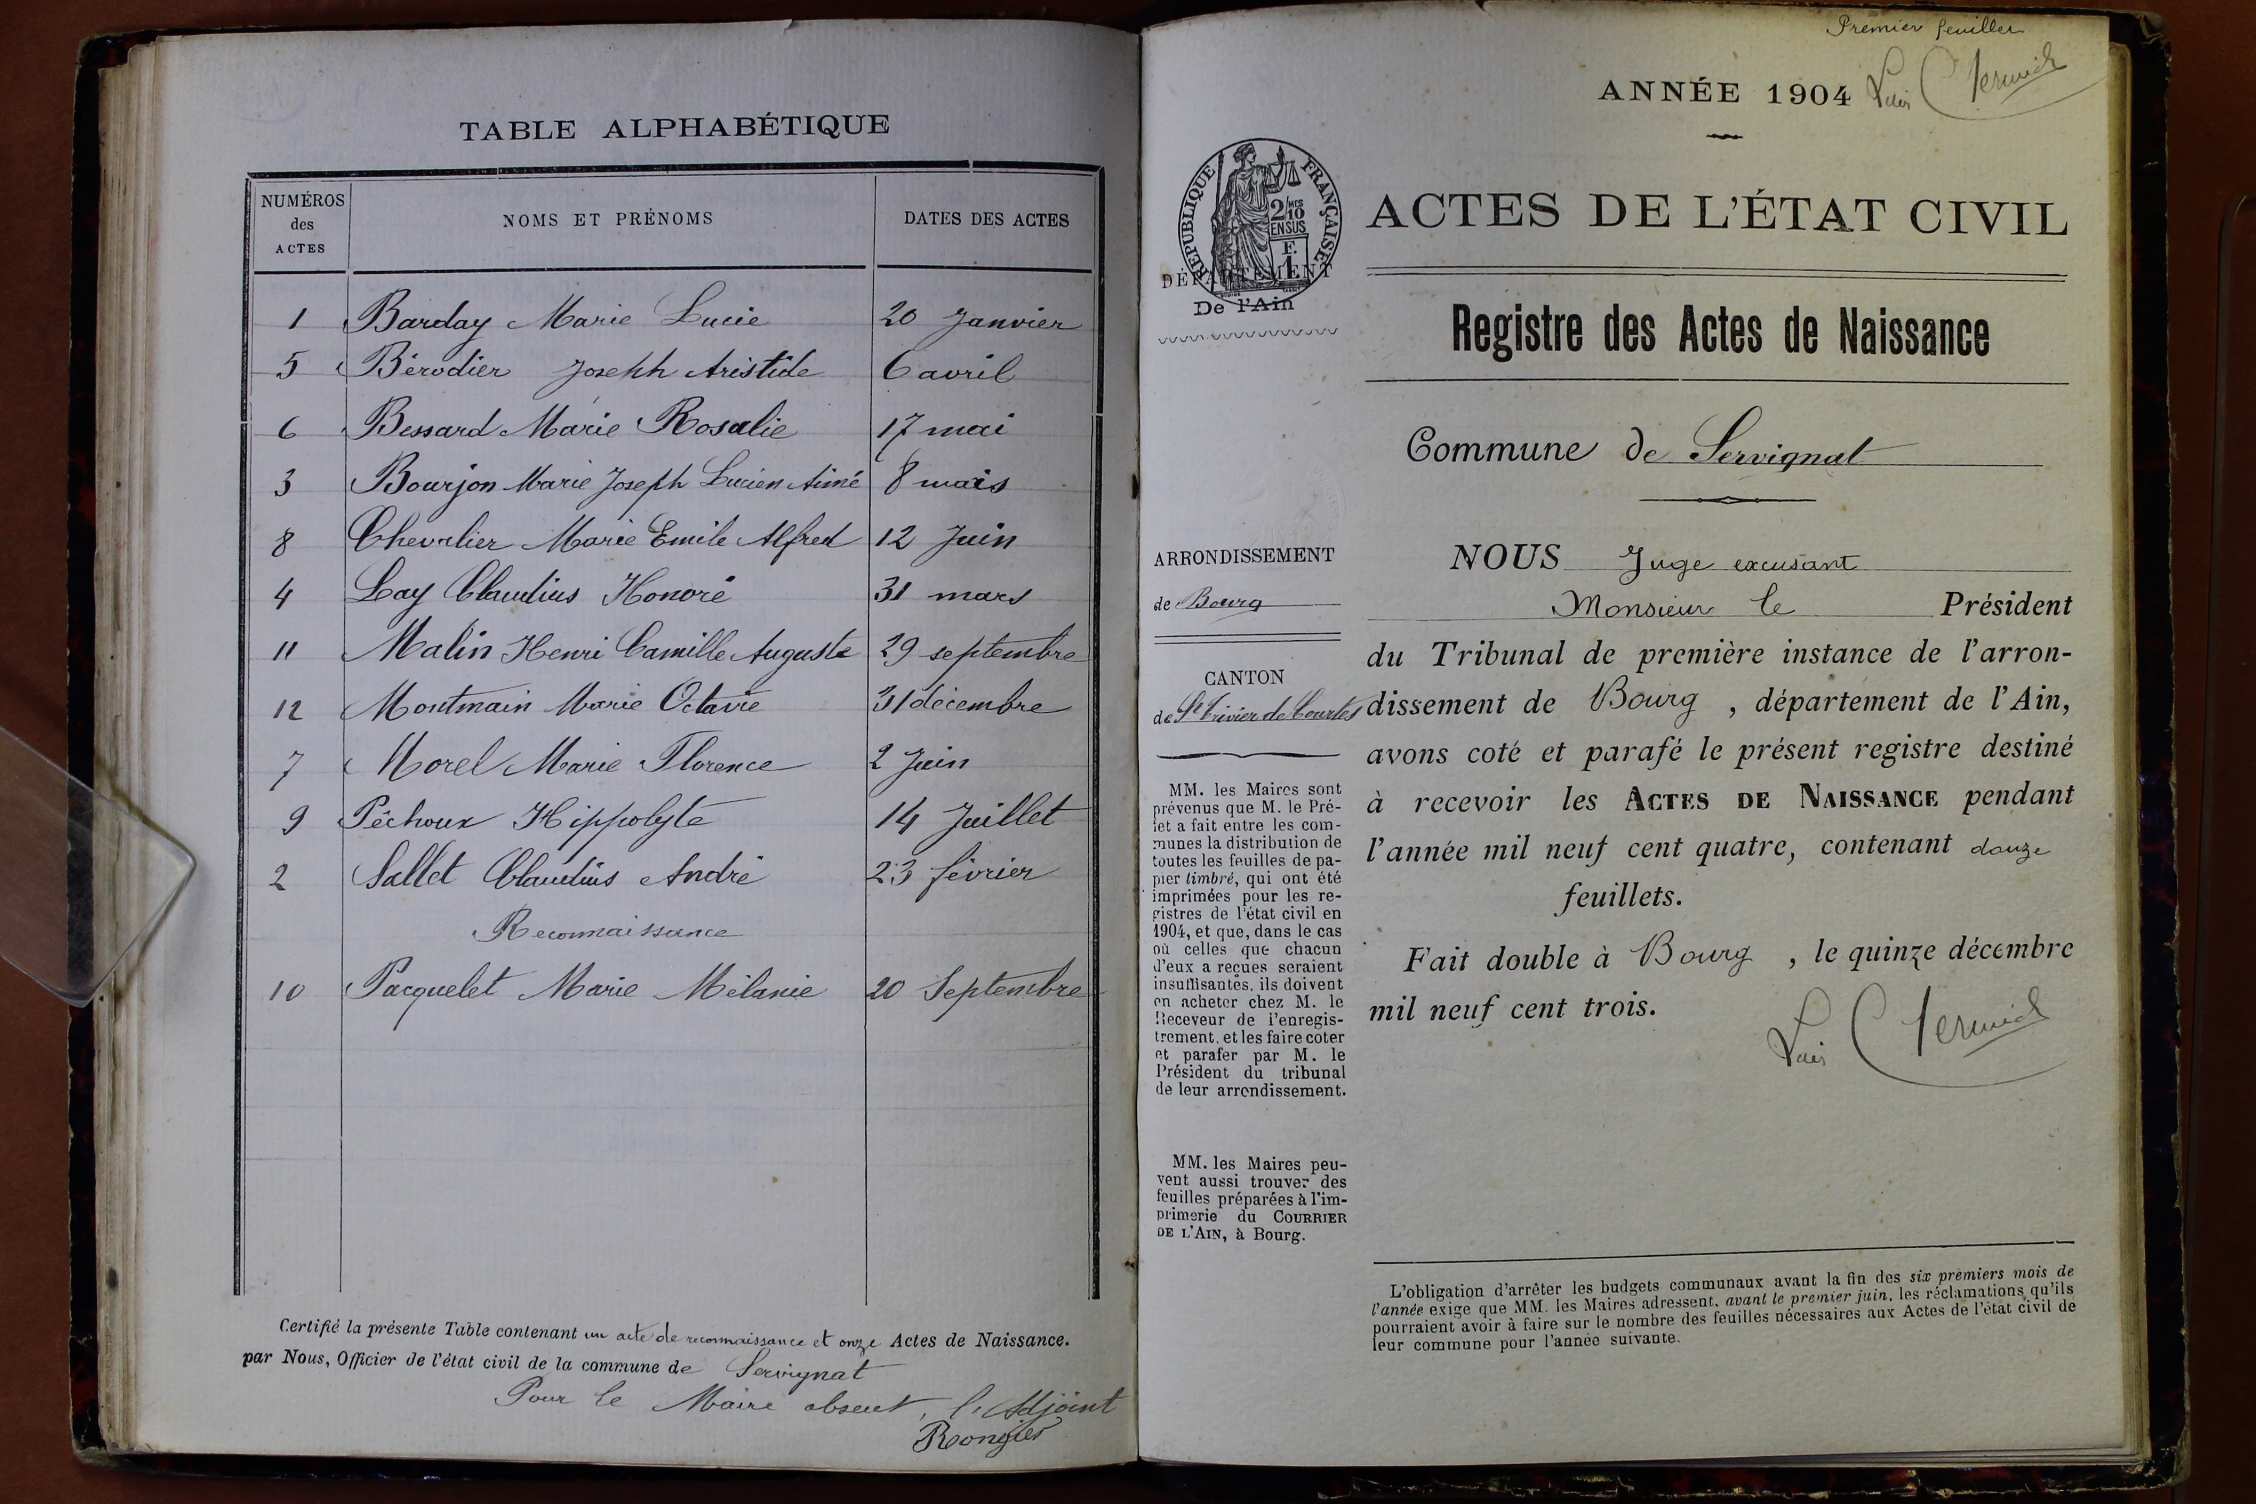 TABLE ALPHABÉTIQUE
NUMÉROS des ACTES NOMS ET PRÉNOMS DATES DES ACTES
1 Barday Marie Lucie 20 Janvier
5 Bérodier Joseph Aristide 6 avril
6 Bessard Marie Rosalie 17 mai
3 Bourjon Marie Joseph Lucien Aimé 8 mars
8 Chevalier Marie Emile Alfred 12 Juin
4 Lay Claudius Honoré 31 mars
11 Malin Henri Camille Auguste 29 septembre
12 Montmain Marie Octavie 31 décembre
7 Morel Marie Florence 2 Juin
9 Péchoux Hippolyte 14 Juillet
2 Sallet Claudius André 23 février
Reconnaissance
10 Pacquelet Marie Mélanie 20 Septembre
Certifié la présente Table contenant un acte de reconnaissance et onze Actes de Naissance.
par Nous, Officier de l'état civil de la commune de Servignat
Pour le Maire absent, l'Adjoint
Rongier
Premier feuillet
ANNÉE 1904
RÉPUBLIQUE FRANÇAISE
2/10 MES
EN SUS
F.
1
DÉPARTEMENT
De l'Ain
ARRONDISSEMENT
de Bourg
CANTON
de St Trivier de Courtes
MM. les Maires sont
prévenus que M. le Pré-
fet a fait entre les com-
munes la distribution de
toutes les feuilles de pa-
pier timbré, qui ont été
imprimées pour les re-
gistres de l'état civil en
1904, et que, dans le cas
où celles que chacun
d'eux a reçues seraient
insuffisantes, ils doivent
en acheter chez M. le
Receveur de l'enregis-
trement, et les faire coter
et parafer par M. le
Président du tribunal
de leur arrondissement.
MM. les Maires peu-
vent aussi trouver des
feuilles préparées à l'im-
primerie du COURRIER
DE L'AIN, à Bourg.
ACTES DE L'ÉTAT CIVIL
Registre des Actes de Naissance
Commune de Servignat
NOUS Juge excusant
Monsieur le Président
du Tribunal de première instance de l'arron-
dissement de Bourg, département de l'Ain,
avons coté et parafé le présent registre destiné
à recevoir les ACTES DE NAISSANCE pendant
l'année mil neuf cent quatre, contenant douze
feuillets.
Fait double à Bourg, le quinze décembre
mil neuf cent trois.
L'obligation d'arrêter les budgets communaux avant la fin des six premiers mois de
l'année exige que MM. les Maires adressent, avant le premier juin, les réclamations qu'ils
pourraient avoir à faire sur le nombre des feuilles nécessaires aux Actes de l'état civil de
leur commune pour l'année suivante.